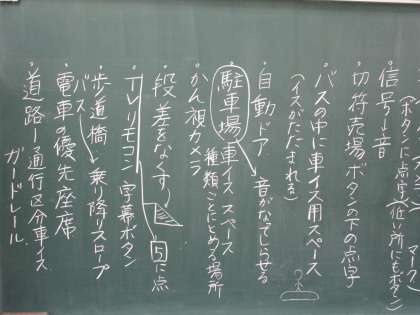 (ボタンに点字)(低い所にもボタン)
・信号→音
・切符売場ボタンの下の点字
・バスの中に車イス用スペース
(イスがたたまれる)
・自動ドア 音がなでしらせる
・駐車場 車イススペース
種類ごとにとめる場所
・かん視カメラ
・段差をなくす
・TVリモコン 字幕ボタン
5に点
・歩道橋
バス→乗り降りスロープ
・電車の優先座席
・道路→通行区分車イス
ガードレール